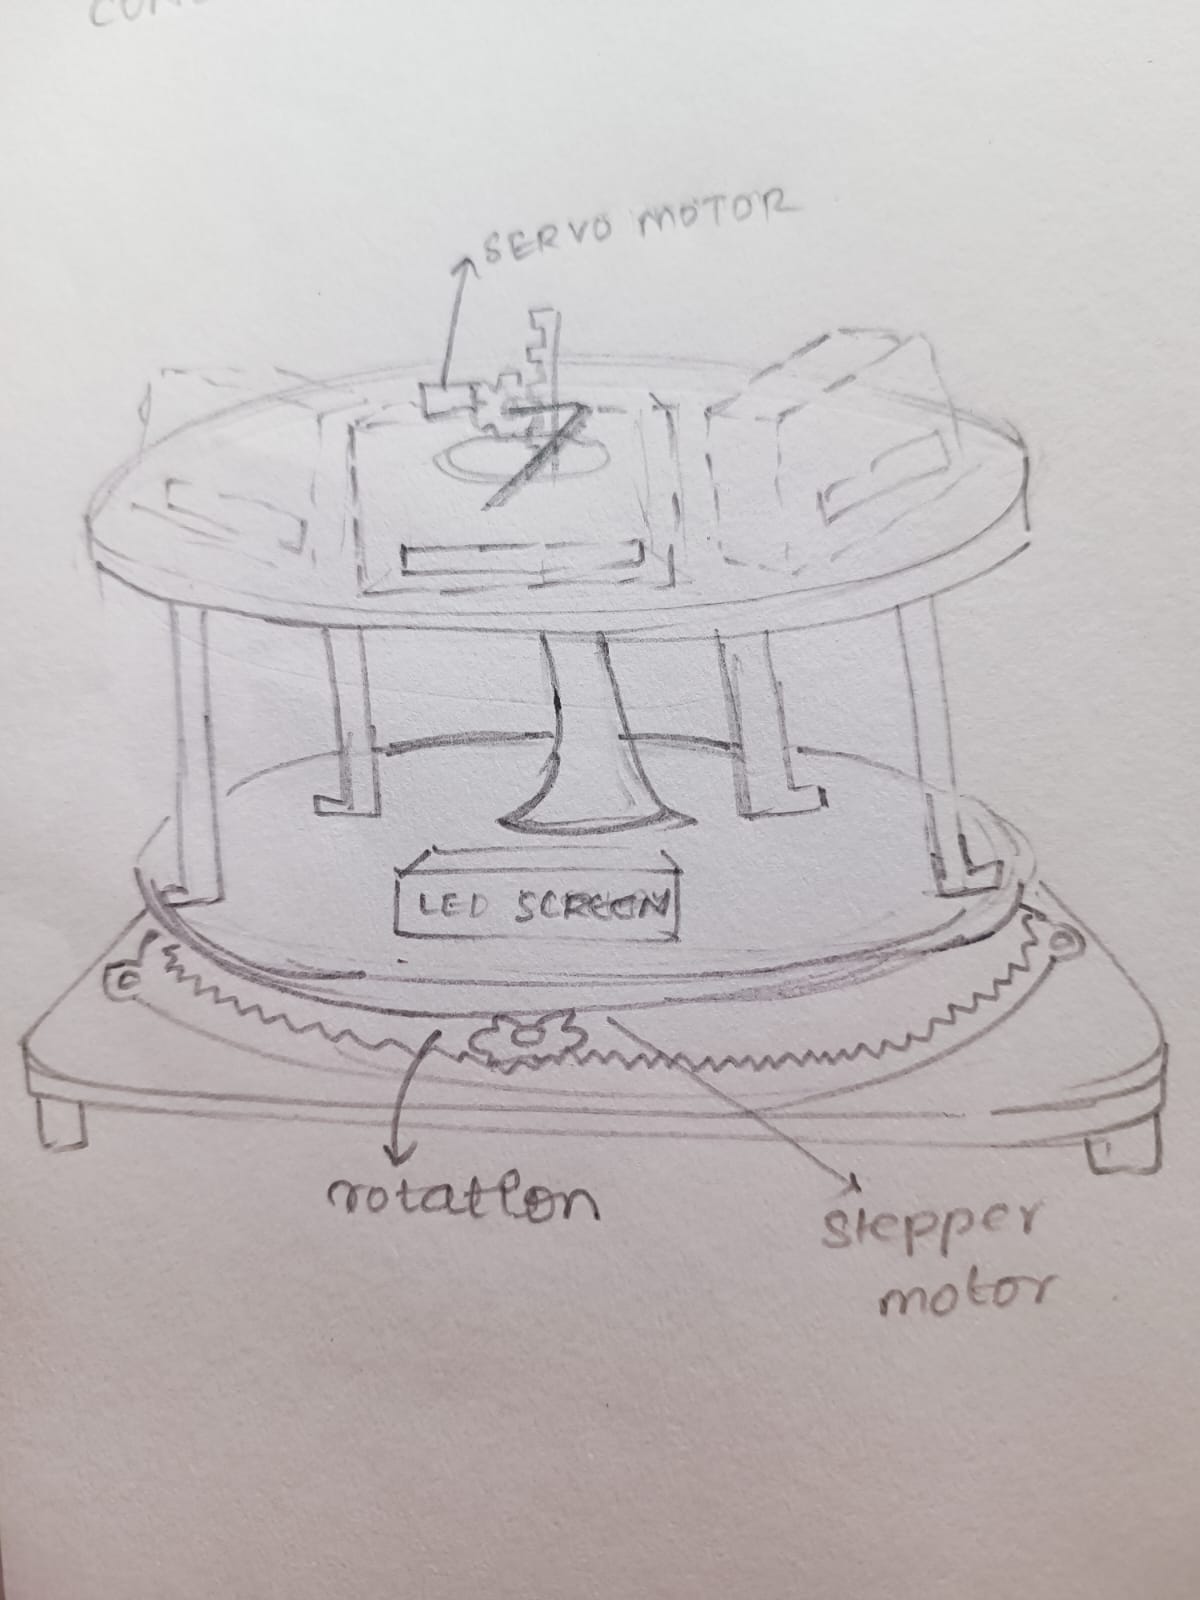 SERVO MOTOR
LED SCREEN
rotation
stepper
motor